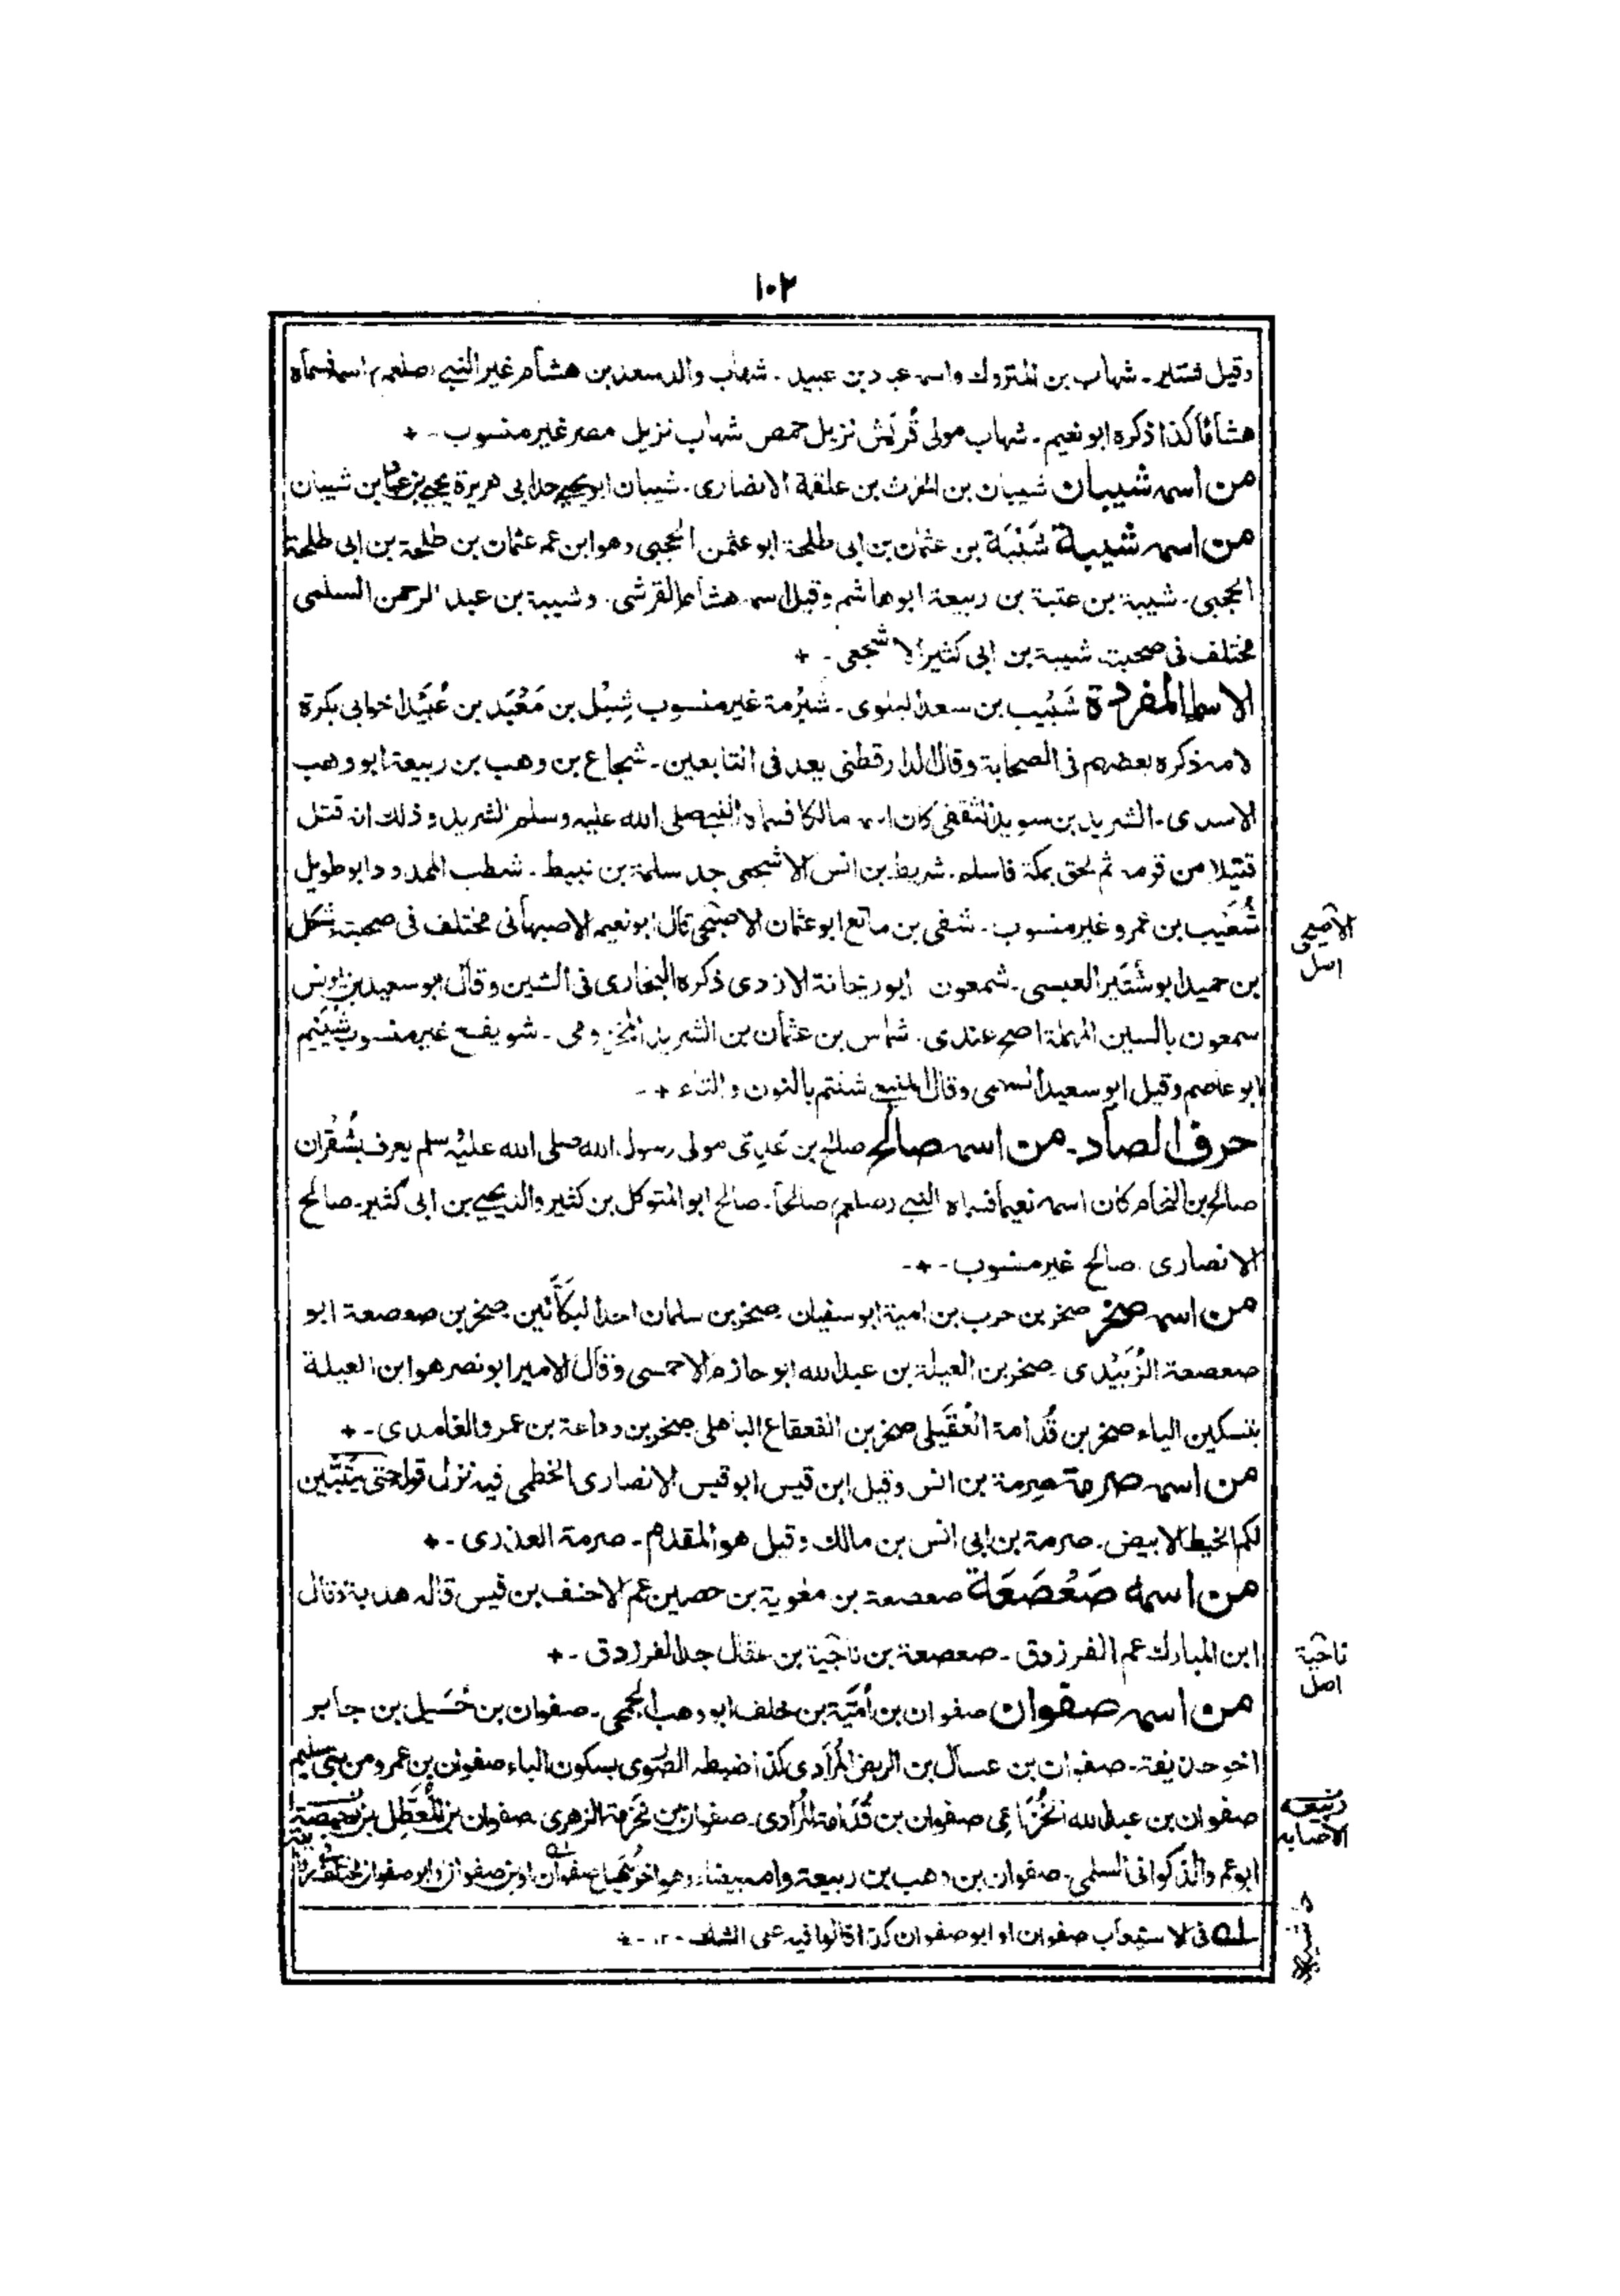 ١٠٢
وقيل شتير ـ شهاب بن المتروك واسمه عباد بن عبيد ـ شهاب والد سعد بن هشام غير النبي (صلعم) اسمه فسماه
هشاما كذا ذكره ابو نعيم ـ شهاب مولى قريش نزيل حمص شهاب نزيل مصر غير منسوب ـ +
من اسمه شيبان شيبان بن المحرث بن علقمة الانصارى ـ شيبان ابو يحيى جد ابى هريرة يحيى بن عباد بن شيبان
من اسمه شيبة شَيْبَة بن عثمان بن ابى طلحة ابو عثمن الحجبى وهو ابن عم عثمان بن طلحة بن ابى طلحة
الحجبى ـ شيبة بن عتبة بن ربيعة ابو هاشم وقيل اسمه هشام القرشى ـ وشيبة بن عبد الرحمن السلمى
مختلف فى صحبته شيبة بن ابى كثير الاشجعى ـ +
الاسماء المفردة شَبِيب بن سعد البلوى ـ شبرمة غير منسوب شِبْل بن مَعْبَد بن عُبَيْد اخو ابى بكرة
لامه ذكره بعضهم فى الصحابة وقال الدارقطنى يعد فى التابعين ـ شجاع بن وهب بن ربيعة ابو وهب
الاسدى ـ الشريد بن سويد الثقفى كان اسمه مالكا فسماه النبى صلى الله عليه وسلم الشريد وذلك انه قتل
قتيلا من قومه ثم لحق بمكة فاسلم ـ شريط بن انس الاشجعى جد سلمة بن نبيط ـ شطب الممدود ابو طويل
شُعَيب بن عمرو غير منسوب ـ شفى بن ماتع ابو عثمان الاصبحى قال ابو نعيم الاصبهانى مختلف فى صحبته شكل
بن حميد ابو شُتَير العبسى ـ شمعون ابو ريحانة الازدى ذكره البخارى فى الشين وقال ابو سعيد بن يونس
سمعون بالسين المهملة اصح عندى ـ شماس بن عثمان بن الشريد المخزومى ـ شويفع غير منسوب شُيَيم
ابو عاصم وقيل ابو سعيد السهمى وقال المنيعى شنتم بالنون والتاء + ـ
حرف الصاد ـ من اسمه صالح صالح بن عَدِىّ مولى رسول الله صلى الله عليه سلم يعرف بشُقران
صالح بن النحام كان اسمه نعيما فسماه النبى (صلعم) صالحا ـ صالح ابو المتوكل بن كثير والد يحيى بن ابى كثير ـ صالح
الانصارى ـ صالح غير منسوب ـ + ـ
من اسمه صخر صخر بن حرب بن امية ابو سفيان ـ صخر بن سلمان احد البكَّائين ـ صخر بن صعصعة ابو
صعصعة الزُبَيْدى ـ صخر بن العيلة بن عبد الله ابو حازم الاحمسى وقال الامير ابو نصر هو ابن العيلة
بتسكين الياء صخر بن قُدامة العُقَيلى صخر بن القعقاع الباهلى صخر بن وداعة بن عمرو الغامدى ـ +
من اسمه صرمة صرمة بن انس وقيل ابن قيس ابو قيس الانصارى الخطمى فيه نزل قوله حتى يتبين
لكم الخيط الابيض ـ صرمة بن ابى انس بن مالك وقيل هو المقدم ـ صرمة العذرى ـ +
من اسمه صَعْصَعَة صعصعة بن معوية بن حصين عم الاحنف بن قيس قاله هدبة وقال
ابن المبارك عم الفرزدق ـ صعصعة بن ناجية بن عقال جد الفرزدق ـ +
من اسمه صفوان صفوان بن أُمَيَّة بن خلف ابو وهب الجمحى ـ صفوان بن حُسَيل بن جابر
اخو حذيفة ـ صفوان بن عسال بن الربض المُرادى كذا ضبطه الصورى بسكون الباء صفوان بن عمرو من بنى سليم
صفوان بن عبد الله الخُزَاعى صفوان بن قُدَامة المُرادى ـ صفوان بن مَخرَمة الزهرى ـ صفوان بن المُعَطّل بن رخصة
ابو عمرو الذكوانى السلمى ـ صفوان بن وهب بن ربيعة وامه بيضاء وهو اخو سُهَيل صفوان او بن صفوان او ابو صفوان
له فى الاستيعاب صفوان او ابو صفوان كذا قالوا فيه على الشك ـ ١٢ ـ +
الاصبحى
اصل
ناجية
اصل
ربيعه
الاصابه